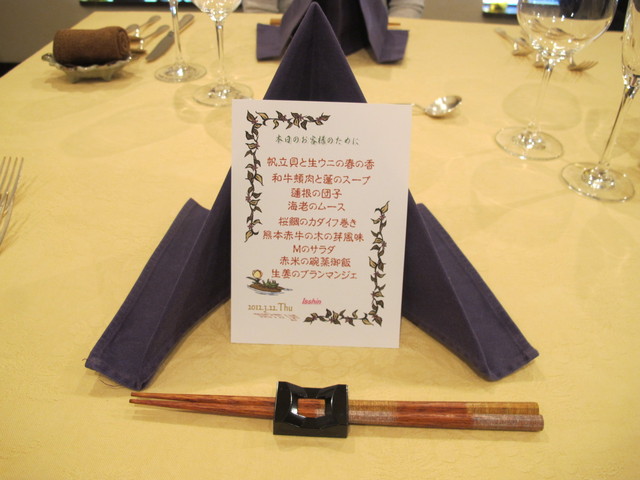 本日のお客様のために
帆立貝と生ウニの春の香
和牛頬肉と蓮のスープ
蓮根の団子
海老のムース
桜鯛のカダイフ巻き
熊本赤牛の木の芽風味
Mのサラダ
赤米の碗蒸御飯
生姜のブランマンジェ
Isshin
2012.3.22.Thu